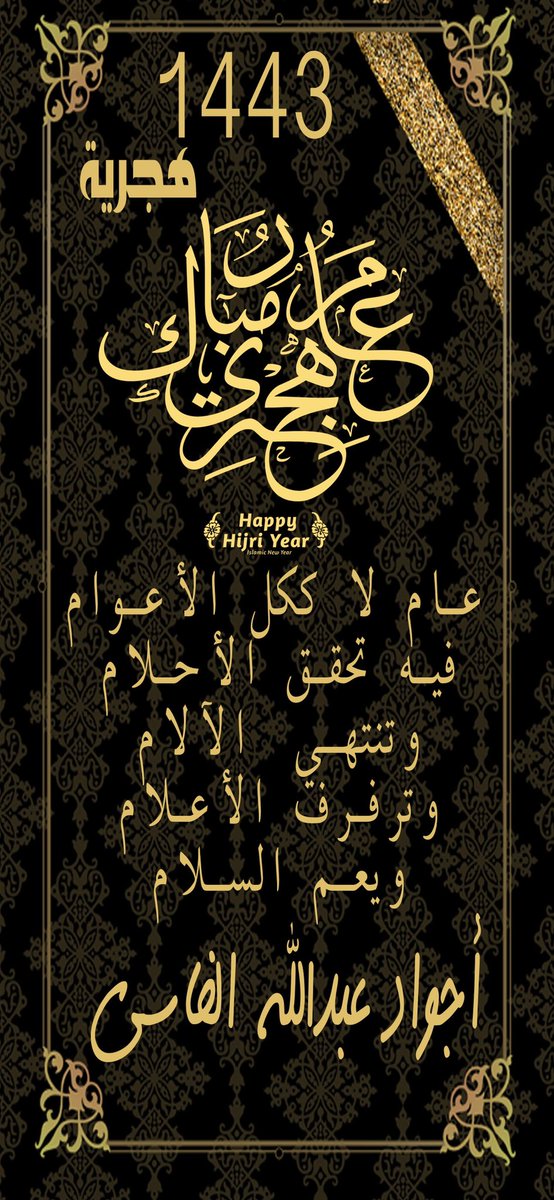 1443
هجرية
عام هجري مبارك
Happy
Hijri Year
Islamic New Year
عام لا ككل الأعوام
فيه تحقق الأحلام
وتنتهي الآلام
وترفرف الأعلام
ويعم السلام
أجواد عبدالله الفاسي